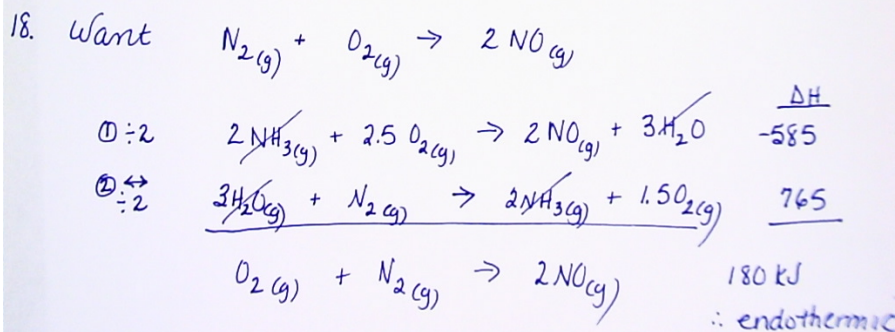 18. Want N₂(g) + O₂(g) → 2 NO(g)
ΔH
① ÷2 2 NH₃(g) + 2.5 O₂(g) → 2 NO(g) + 3H₂O -585
② ↔ ÷2 3H₂O(g) + N₂(g) → 2NH₃(g) + 1.5O₂(g) 765
O₂(g) + N₂(g) → 2NO(g) 180 kJ
∴ endothermic